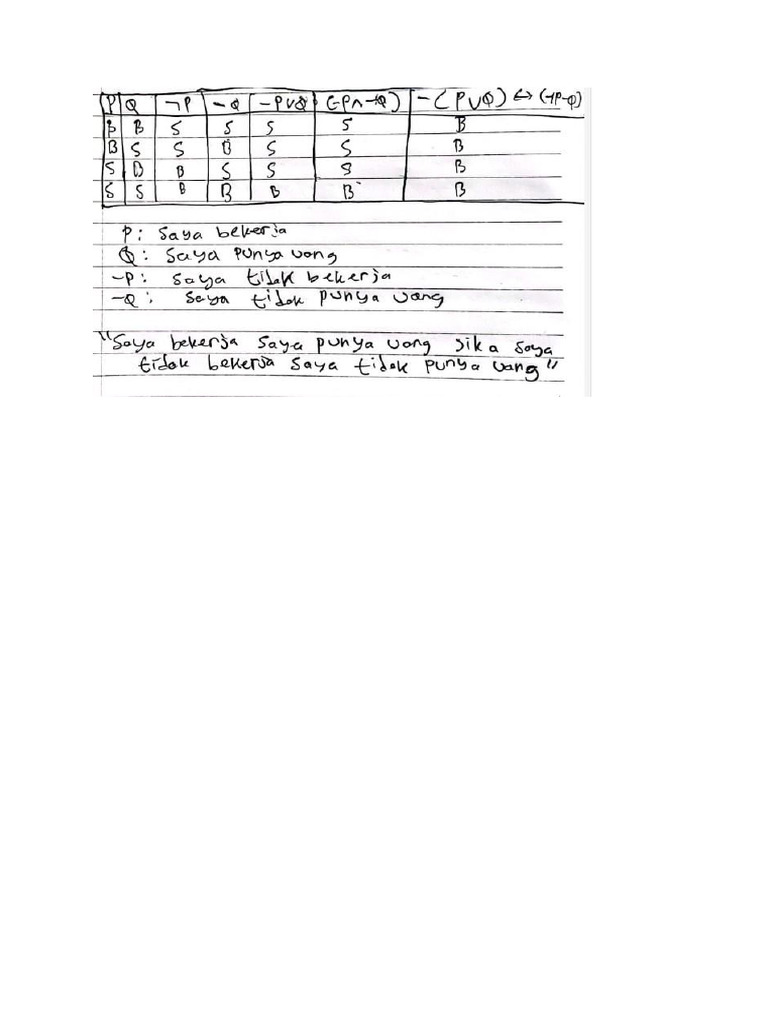 P Q ¬P -Q -PVQ (-P∧-Q) -(PVQ) ↔ (¬P-Q)
B B S S S S B
B S S B S S B
S B B S S S B
S S B B B B B
P : Saya bekerja
Q : Saya Punya uang
-P : Saya tidak bekerja
-Q : Saya tidak punya uang
"Saya bekerja saya punya uang jika saya
tidak bekerja saya tidak punya uang"